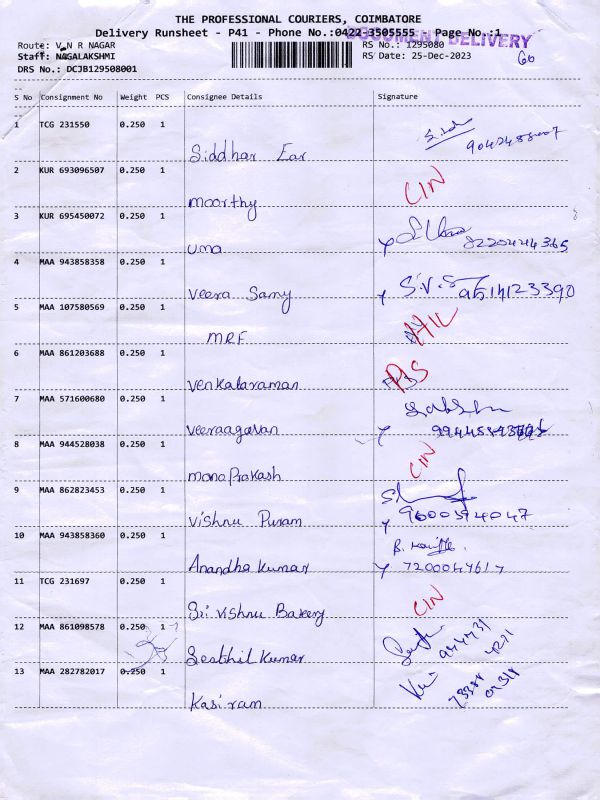 THE PROFESSIONAL COURIERS, COIMBATORE
Delivery Runsheet - P41 - Phone No.:0422-3505555 Page No.:1
DOCUMENT DELIVERY
Route: V N R NAGAR RS No.: 1295080
Staff: NAGALAKSHMI RS Date: 25-Dec-2023 60
DRS No.: DCJB129508001
S No Consignment No Weight PCS Consignee Details Signature
1 TCG 231550 0.250 1
Siddhar Ear
2 KUR 693096507 0.250 1 CIN
moorthy
3 KUR 695450072 0.250 1
uma 8220444365
4 MAA 943858358 0.250 1
Veera Samy S.V.S 9514123390
5 MAA 107580569 0.250 1
MRF
6 MAA 861203688 0.250 1
Venkataraman
7 MAA 571600680 0.250 1
Veeraagavan
8 MAA 944528038 0.250 1 CIN
mano Prakash
9 MAA 862823453 0.250 1
Vishnu Puram 9600594047
10 MAA 943858360 0.250 1
Anandha Kumar 7200047617
11 TCG 231697 0.250 1 CIN
Sri Vishnu Bakery
12 MAA 861098578 0.250 1
Senthil Kumar 944431 4271
13 MAA 282782017 0.250 1
Kasi ram